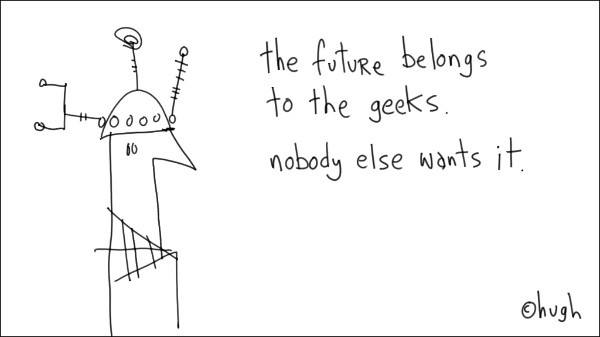 the future belongs
to the geeks.
nobody else wants it.
©hugh